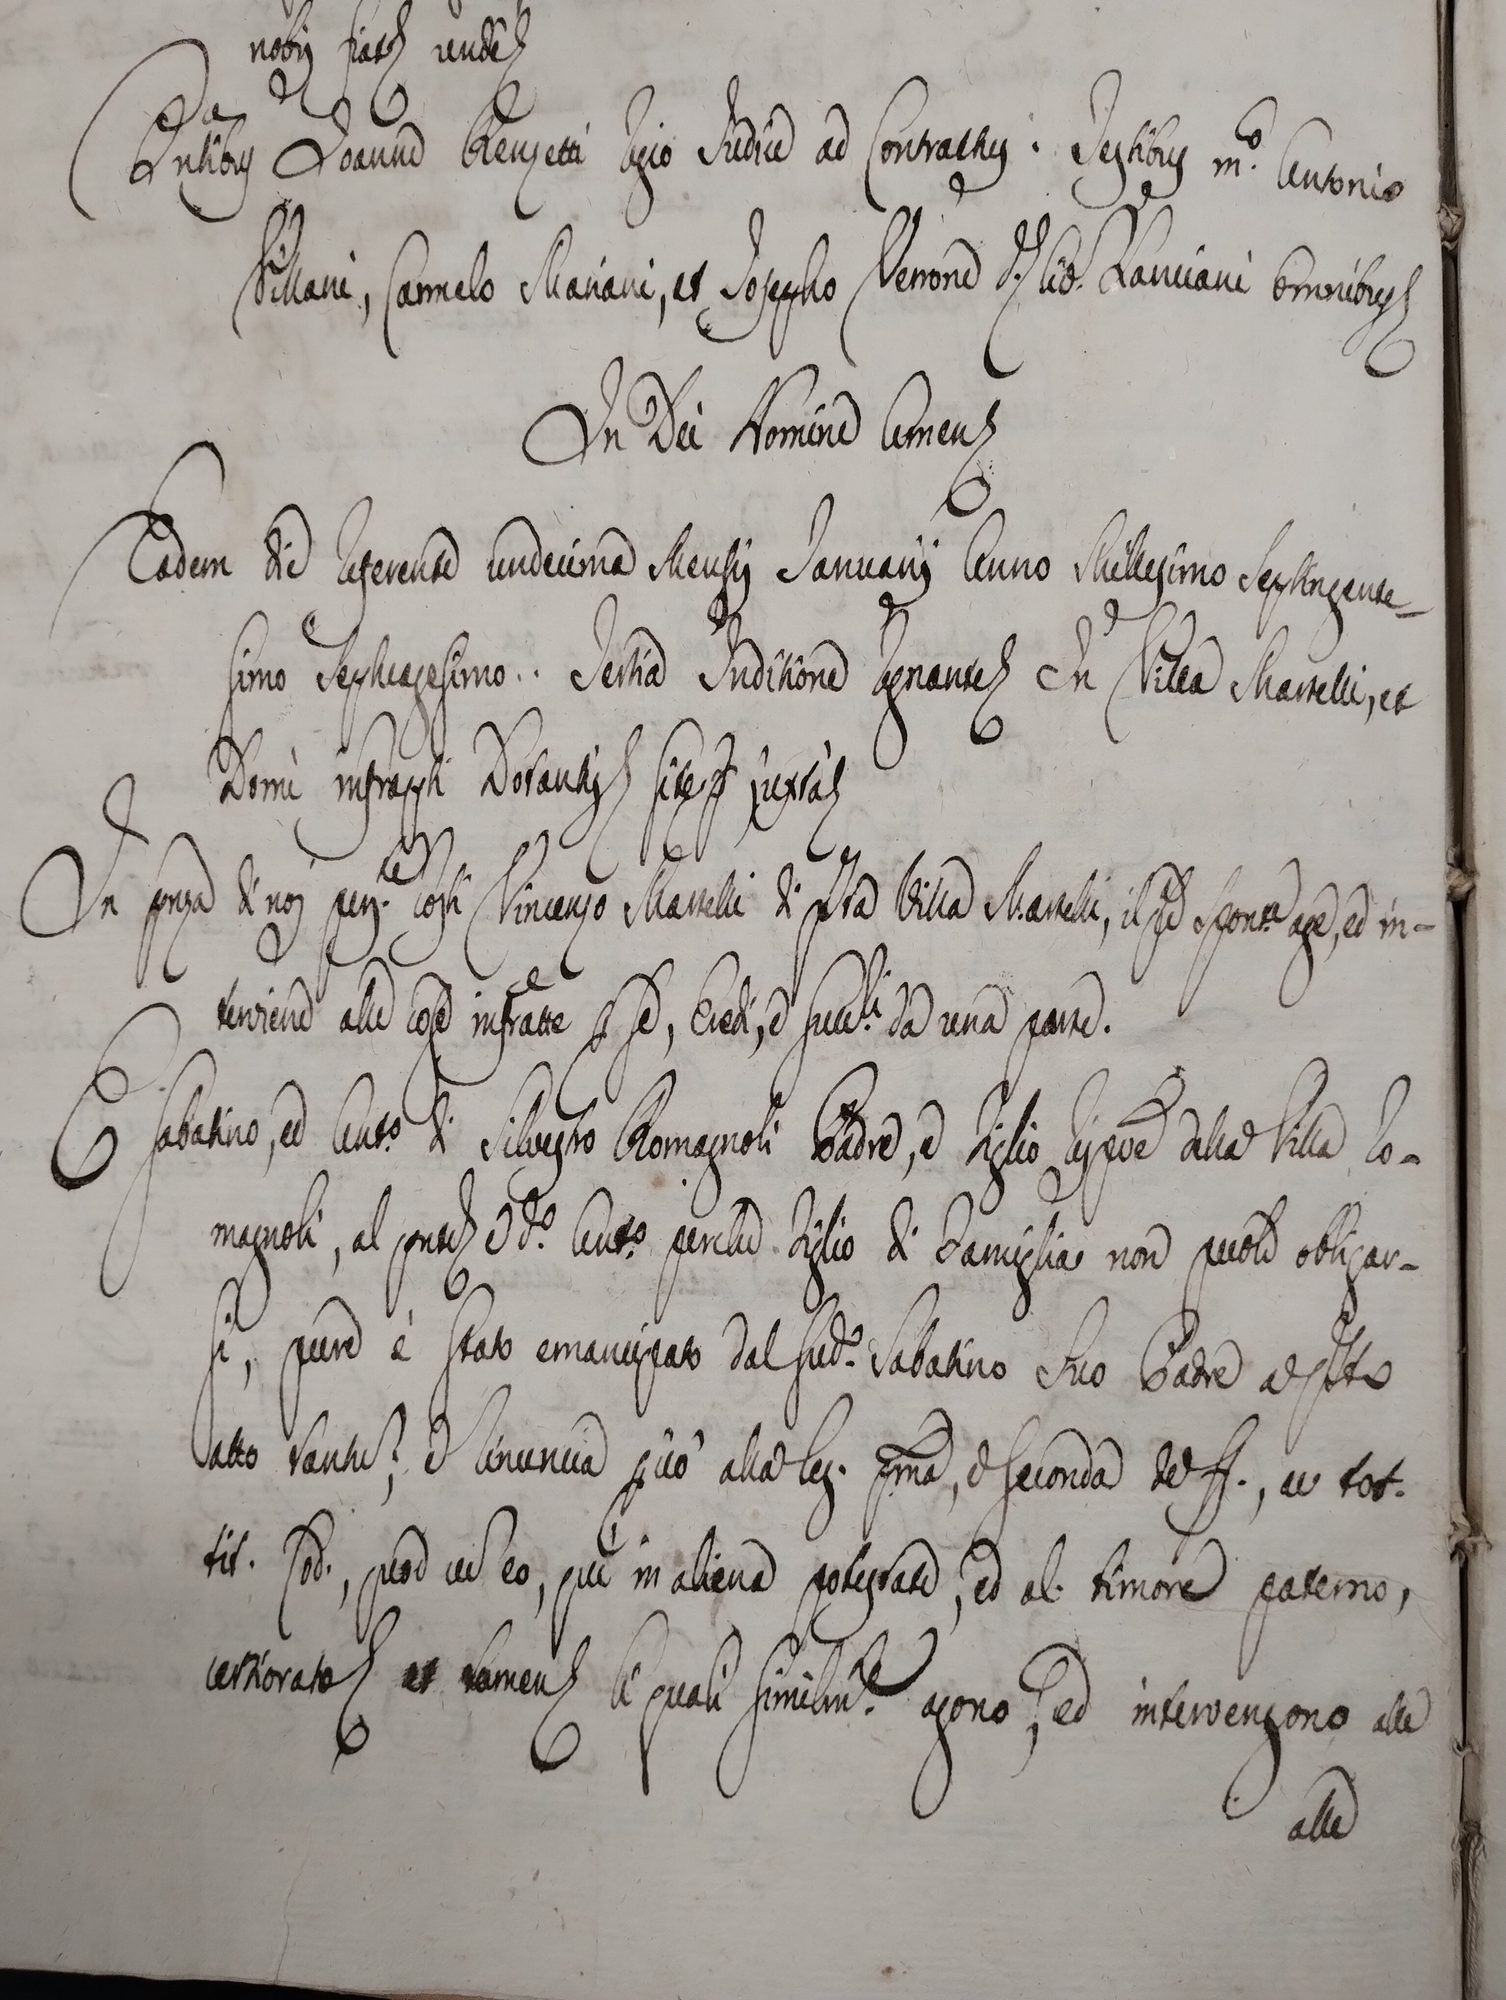 nobis fiat etc. unde etc.
Pntibus Joanne Renzetti Regio Judice ad Contractus. Testibus m.o Antonio
Villani, Carmelo Mariani, et Josepho Verrone Lanciani omnibus etc.
In Dei Nomine Amen etc.
Eadem die referente undecima Mensis Januarii Anno Millesimo Septingente-
simo Septuagesimo.. Tertia Inditione regnante etc. In Villa Martelli, et
Domi infrapti Dotantis etc. site juxta etc.
In pnza di noi psn.te costi Vincenzo Martelli di pta Villa Martelli, il qle spont.te age, ed in-
terviene alle cose infratte p se, Eredi, e succ.ri da una parte.
E Sabatino, ed Ant.o di Silvestro Romagnoli Padre, e Figlio respve della Villa Ro-
magnoli, al pnte etc. e d.o Ant.o perche Figlio di Famiglia non puole obligar-
si, pure è stato emancipato dal sud.o Sabatino suo Padre a qsto
atto tantu, e rinuncia pciò alla leg. pma, e seconda de ff., ac tot.
tit. Cod., quod cu eo, qui in aliena potestate, ed al timore paterno,
certiorato etc. et tamen etc. li quali similm.te agono, ed intervengono alle
alle